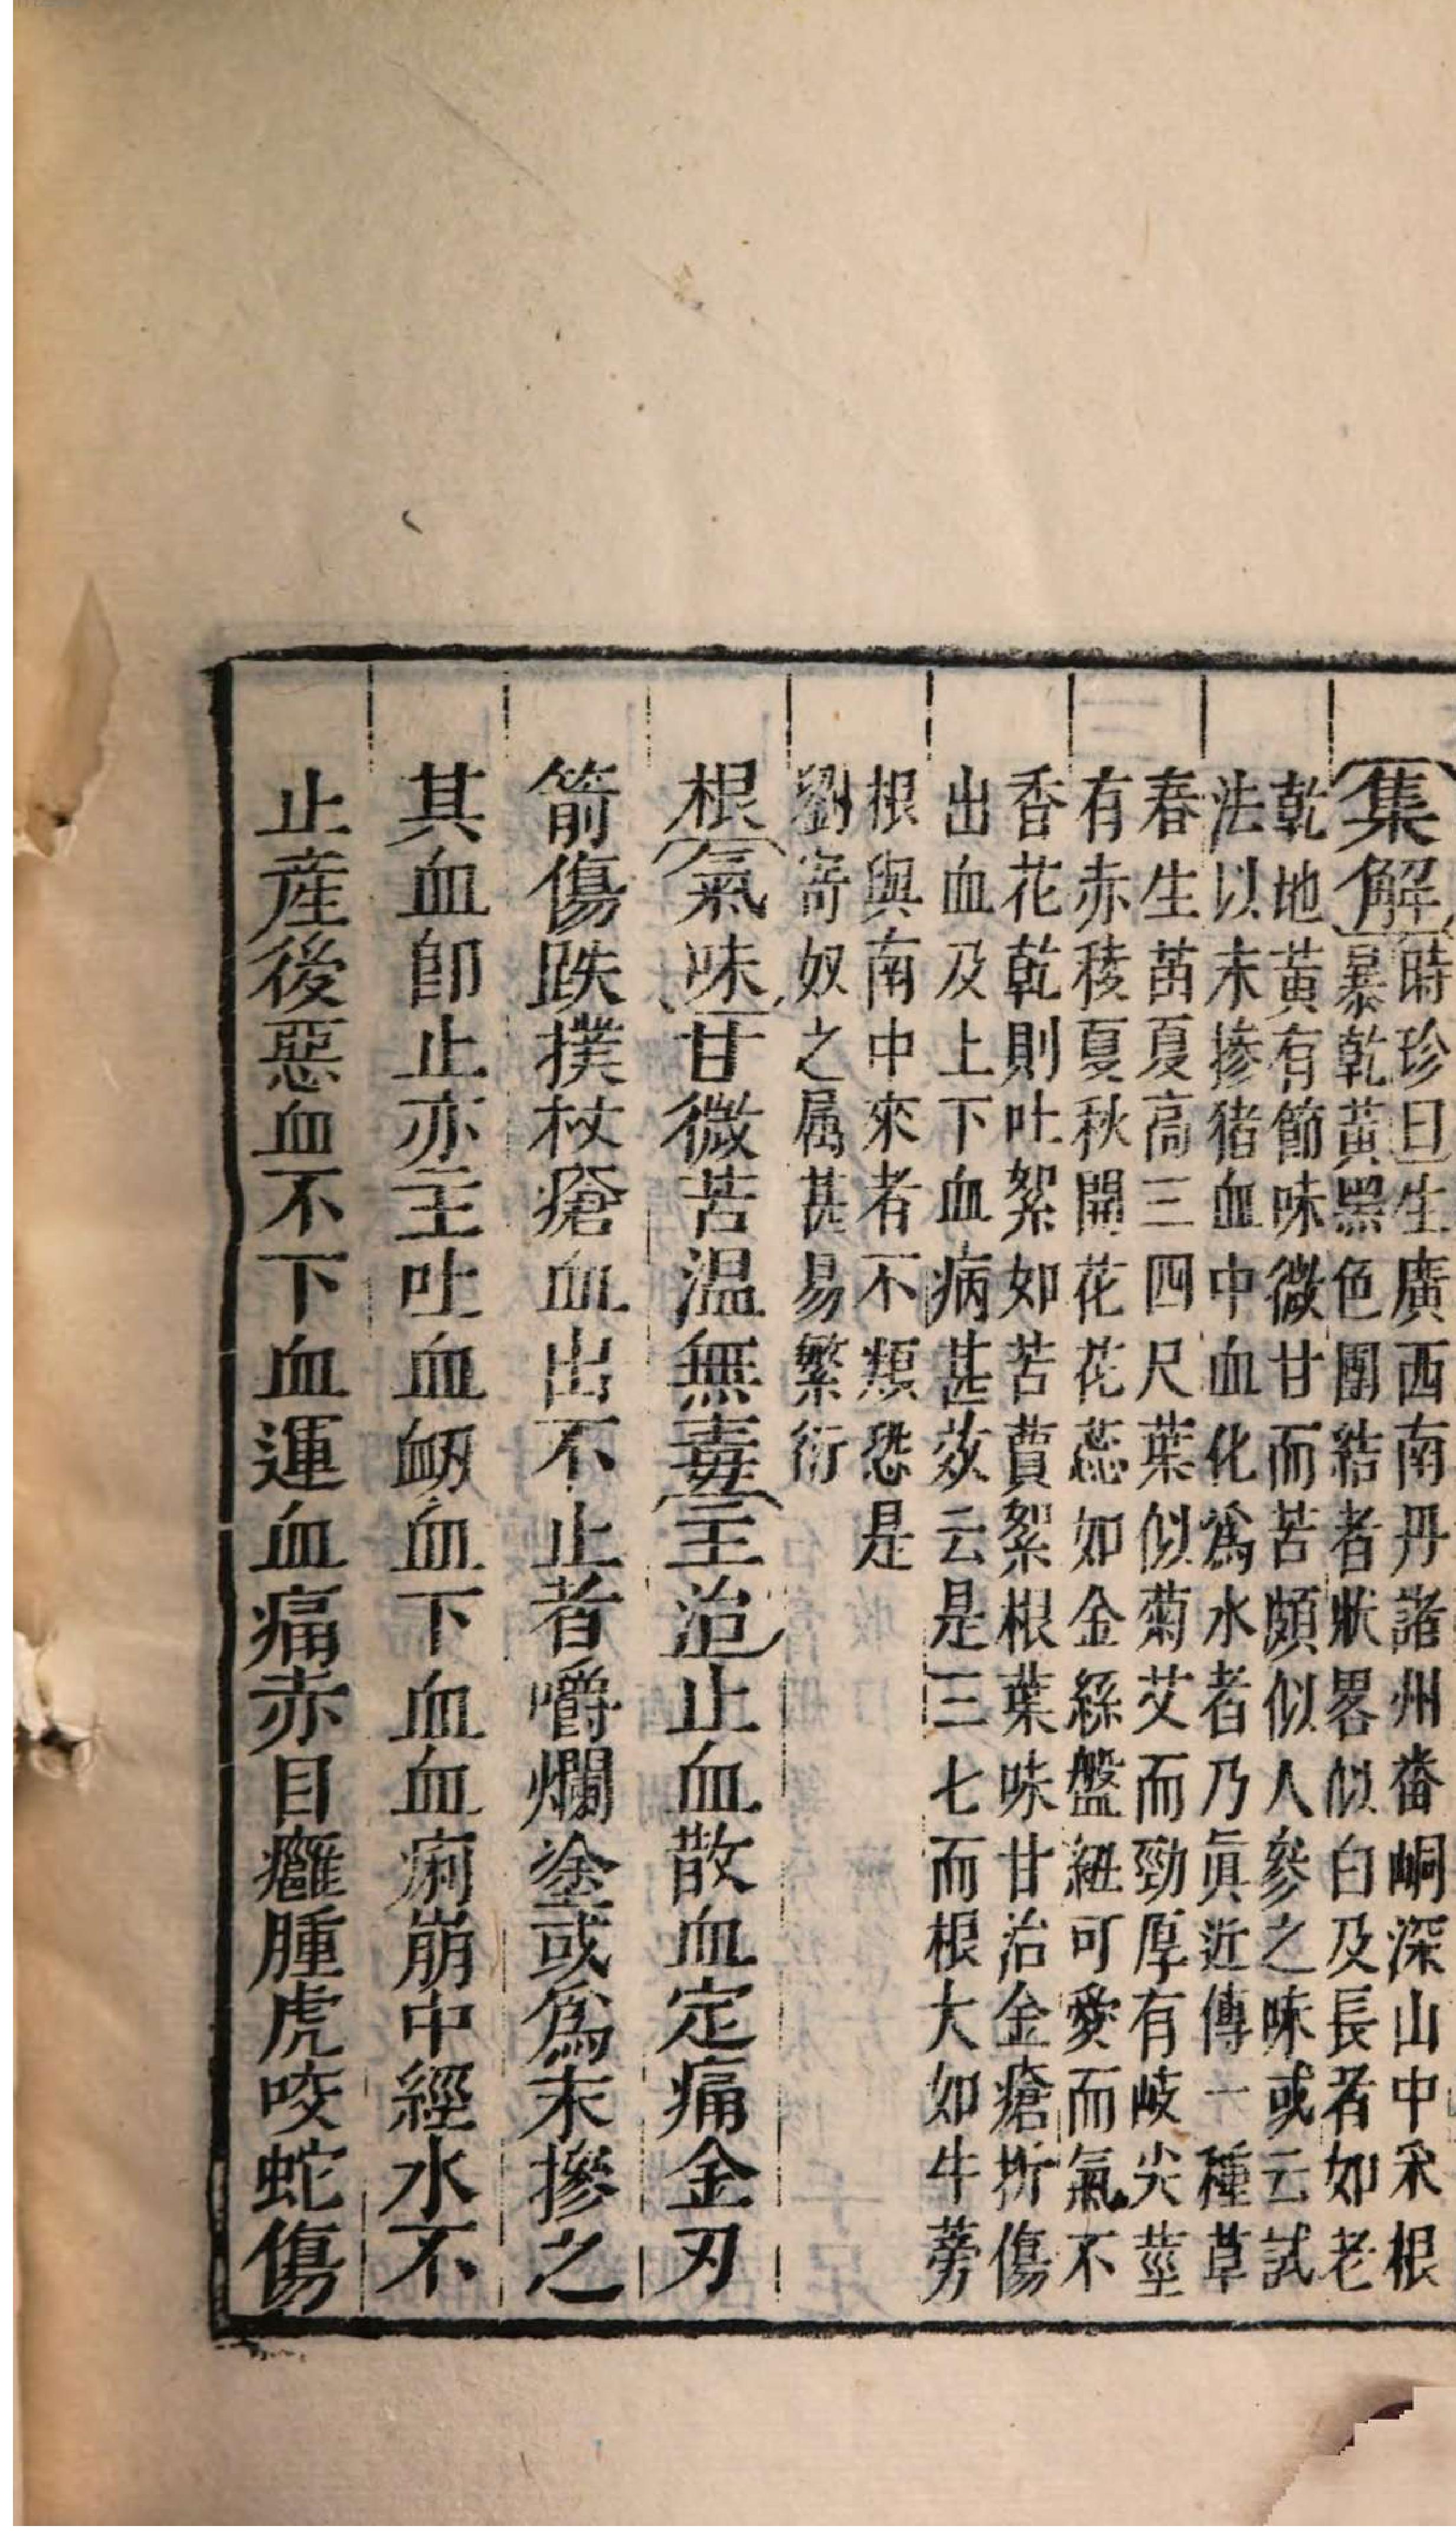 集解時珍曰生廣西南丹諸州番峒深山中采根
暴乾黃黑色團結者狀畧似白及長者如老
乾地黃有節味微甘而苦頗似人參之味或云試
法以末掺猪血中血化爲水者乃眞近傳一種草
春生苗夏高三四尺葉似菊艾而勁厚有岐尖莖
有赤稜夏秋開花花蕊如金絲盤紐可愛而氣不
香花乾則吐絮如苦蕒絮根葉味甘治金瘡折傷
出血及上下血病甚效云是三七而根大如牛蒡
根與南中來者不類恐是
劉寄奴之属甚易繁衍
根氣味甘微苦温無毒主治止血散血定痛金刃
箭傷跌撲杖瘡血出不止者嚼爛塗或爲末摻之
其血卽止亦主吐血衂血下血血痢崩中經水不
止産後惡血不下血運血痛赤目癰腫虎咬蛇傷